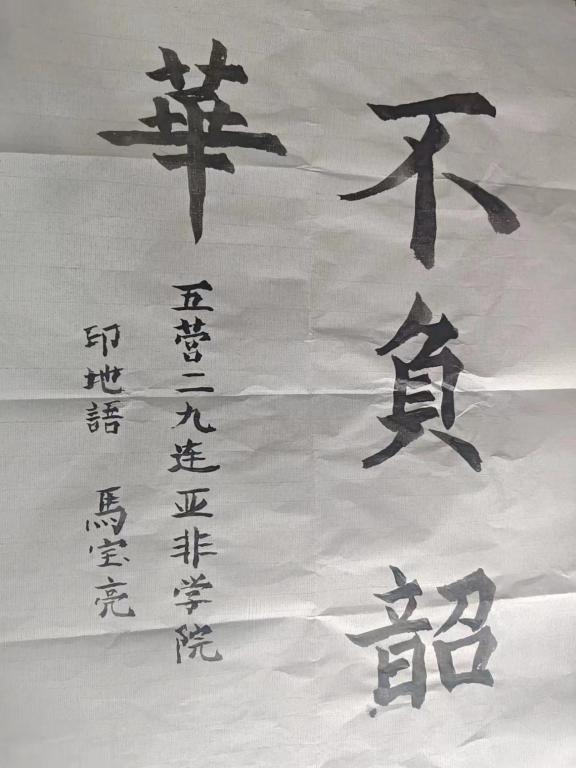 不負韶
華
五营二九连亚非学院
印地語 馬宝亮